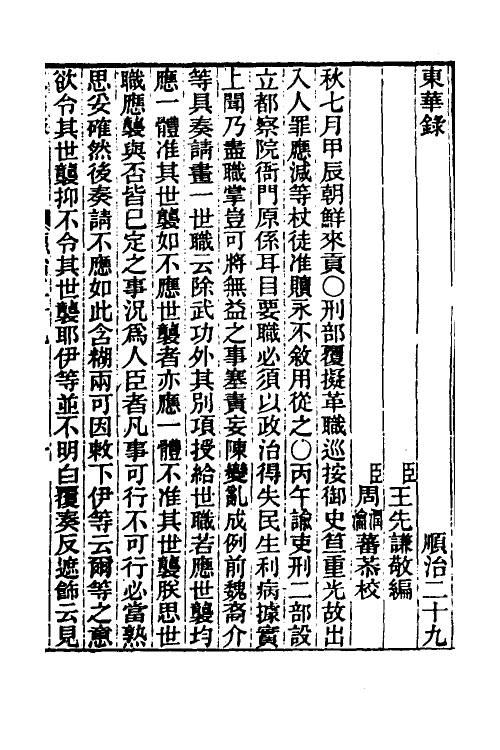 東華錄
順治二十九
臣王先謙敬編
臣周潤蕃瀹蕃恭校
秋七月甲辰朝鮮來貢○刑部覆擬革職巡按御史笪重光故出
入人罪應減等杖徒准贖永不敘用從之○丙午諭吏刑二部設
立都察院衙門原係耳目要職必須以政治得失民生利病據實
上聞乃盡職掌豈可將無益之事塞責妄陳變亂成例前魏裔介
等具奏請畫一世職云除武功外其別項授給世職若應世襲均
應一體准其世襲如不應世襲者亦應一體不准其世襲朕思世
職應襲與否皆已定之事況爲人臣者凡事可行不可行必當熟
思妥確然後奏請不應如此含糊兩可因敕下伊等云爾等之意
欲令其世襲抑不令其世襲耶伊等並不明白覆奏反遮飾云見